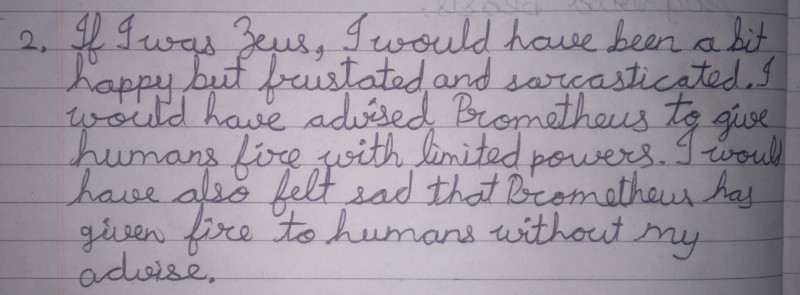 2. If I was Zeus, I would have been a bit
happy but frustated and sarcasticated. I
would have advised Prometheus to give
humans fire with limited powers. I would
have also felt sad that Prometheus has
given fire to humans without my
advise.